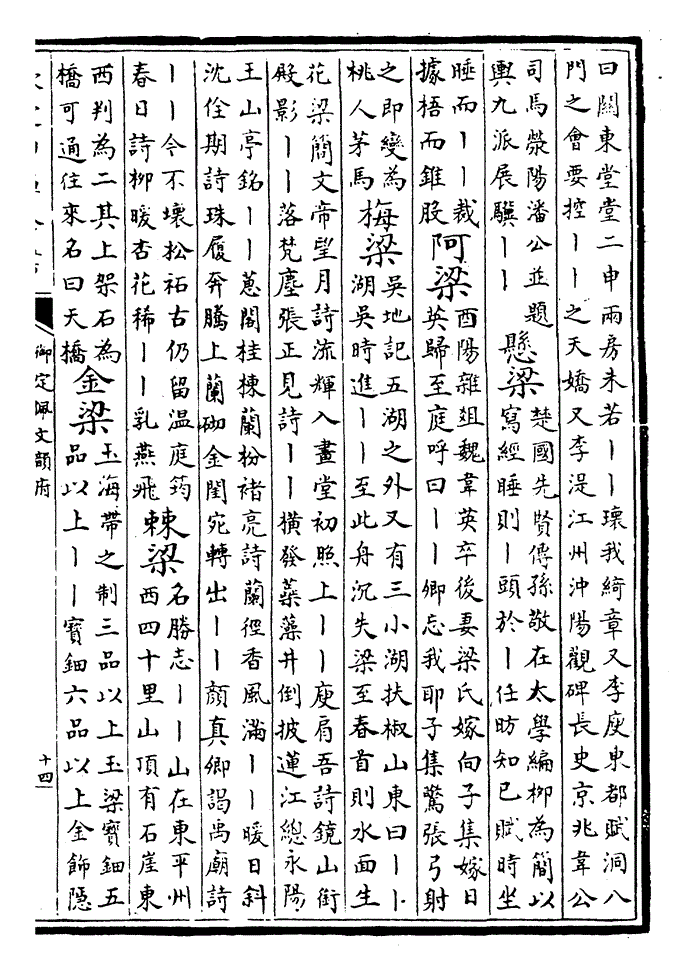 曰關東堂堂二申兩房未若丨丨瓌我綺章又李庾東都賦洞八
門之會要控丨丨之天嬌又李湜江州沖陽觀碑長史京兆韋公
司馬滎陽潘公並題
輿九派展驥丨丨
懸梁
楚國先賢傳孫敬在太學編柳為簡以
寫經睡則丨頭於丨任昉知已賦時坐
睡而丨丨裁
據梧而錐股
阿梁
酉陽雜俎魏韋英卒後妻梁氏嫁向子集嫁日
英歸至庭呼曰丨丨卿忘我耶子集驚張弓射
之即變為
桃人茅馬
梅梁
吳地記五湖之外又有三小湖扶椒山東曰丨丨
湖吳時進丨丨至此舟沉失梁至春首則水面生
花梁簡文帝望月詩流輝入畫堂初照上丨丨庾肩吾詩鏡山銜
殿影丨丨落梵塵張正見詩丨丨橫發蘂藻井倒披蓮江總永陽
王山亭銘丨丨蕙閣桂棟蘭枌褚亮詩蘭徑香風滿丨丨暖日斜
沈佺期詩珠履奔騰上蘭砌金閨宛轉出丨丨顔真卿謁禹廟詩
丨丨今不壞松祏古仍留温庭筠
春日詩栁暖杏花稀丨丨乳燕飛
棘梁
名勝志丨丨山在東平州
西四十里山頂有石崖東
西判為二其上架石為
橋可通往來名曰天橋
金梁
玉海帶之制三品以上玉梁寶鈿五
品以上丨丨寶鈿六品以上金飾隱
御定佩文韻府
十四